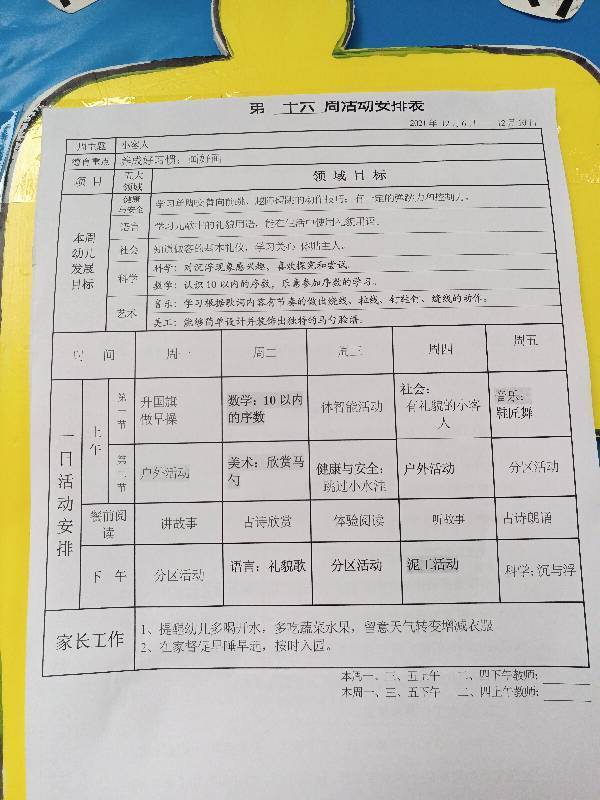 第 十六 周活动安排表
2021年12月6日 12月10日
周主题 小客人
德育重点 养成好习惯：
项目 五大领域 领域目标
本周幼儿发展目标
健康与安全
语言 学习儿歌中的礼貌用语，能在生活中使用礼貌用语。
社会 知道做客的基本礼仪，学习关心 体贴主人。
科学 科学：对沉浮现象感兴趣，喜欢探究和尝试。
数学：认识10以内的序数，乐意参加序数的学习。
艺术 音乐：学习根据歌词内容有节奏的做出绕线、拉线、钉鞋钉、缝线的动作。
美工：能够简单设计并装饰出独特的马勺脸谱。
时间 周一 周二 周三 周四 周五
一日活动安排
上午
第一节 升国旗 做早操 数学：10以内的序数 体智能活动 社会：有礼貌的小客人 音乐：鞋匠舞
第二节 户外活动 美术：欣赏马勺 健康与安全：跳过小水洼 户外活动 分区活动
餐前阅读 讲故事 古诗欣赏 体验阅读 听故事 古诗朗诵
下午 分区活动 语言：礼貌歌 分区活动 泥工活动 科学：沉与浮
家长工作
1、提醒幼儿多喝开水，多吃蔬菜水果，留意天气转变增减衣服
2、在家督促早睡早起，按时入园。
本周一、三、五上午 二、四下午教师：
本周一、三、五下午 二、四上午教师：